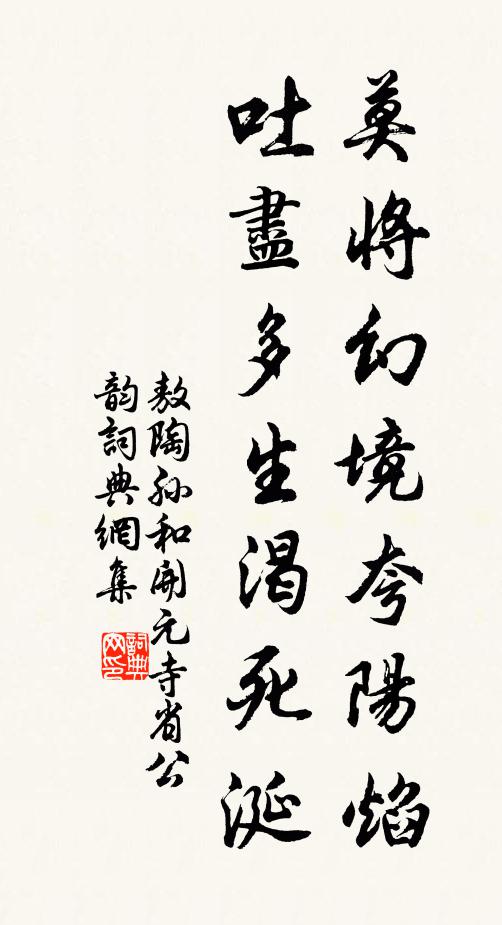 莫將幻境夸陽焰
吐盡多生渴死涎
敖陶孙和開元寺省公
韵詞典網集
詞典网印